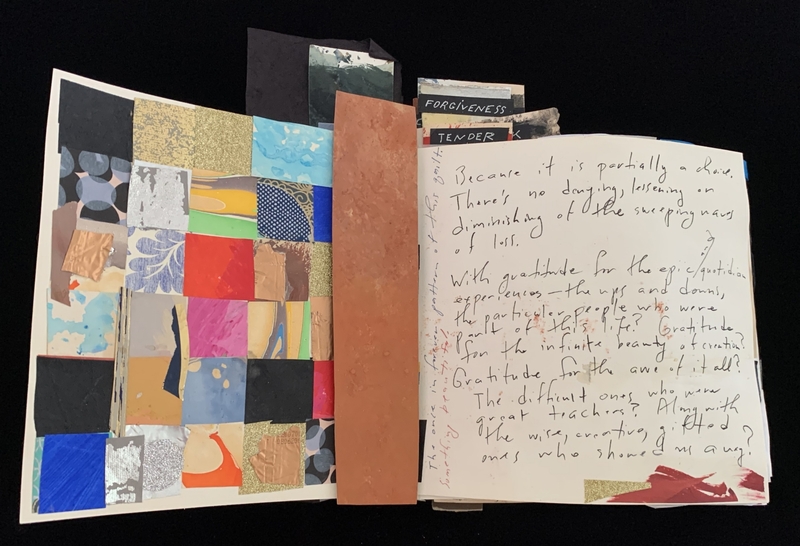 FORGIVENESS
TENDER
Because it is partially a choice.
There's no denying, lessening or
diminishing of the sweeping waves
of loss.
With gratitude for the epic/quotidian
experiences — the ups and downs,
the particular people who were
part of this life? Gratitude
for the infinite beauty of creation?
Gratitude for the awe of it all?
The difficult ones who were
great teachers? Along with
the wise, creative, gifted
ones who showed us a way?
The once in forever pattern of this quilt.
Something beautiful